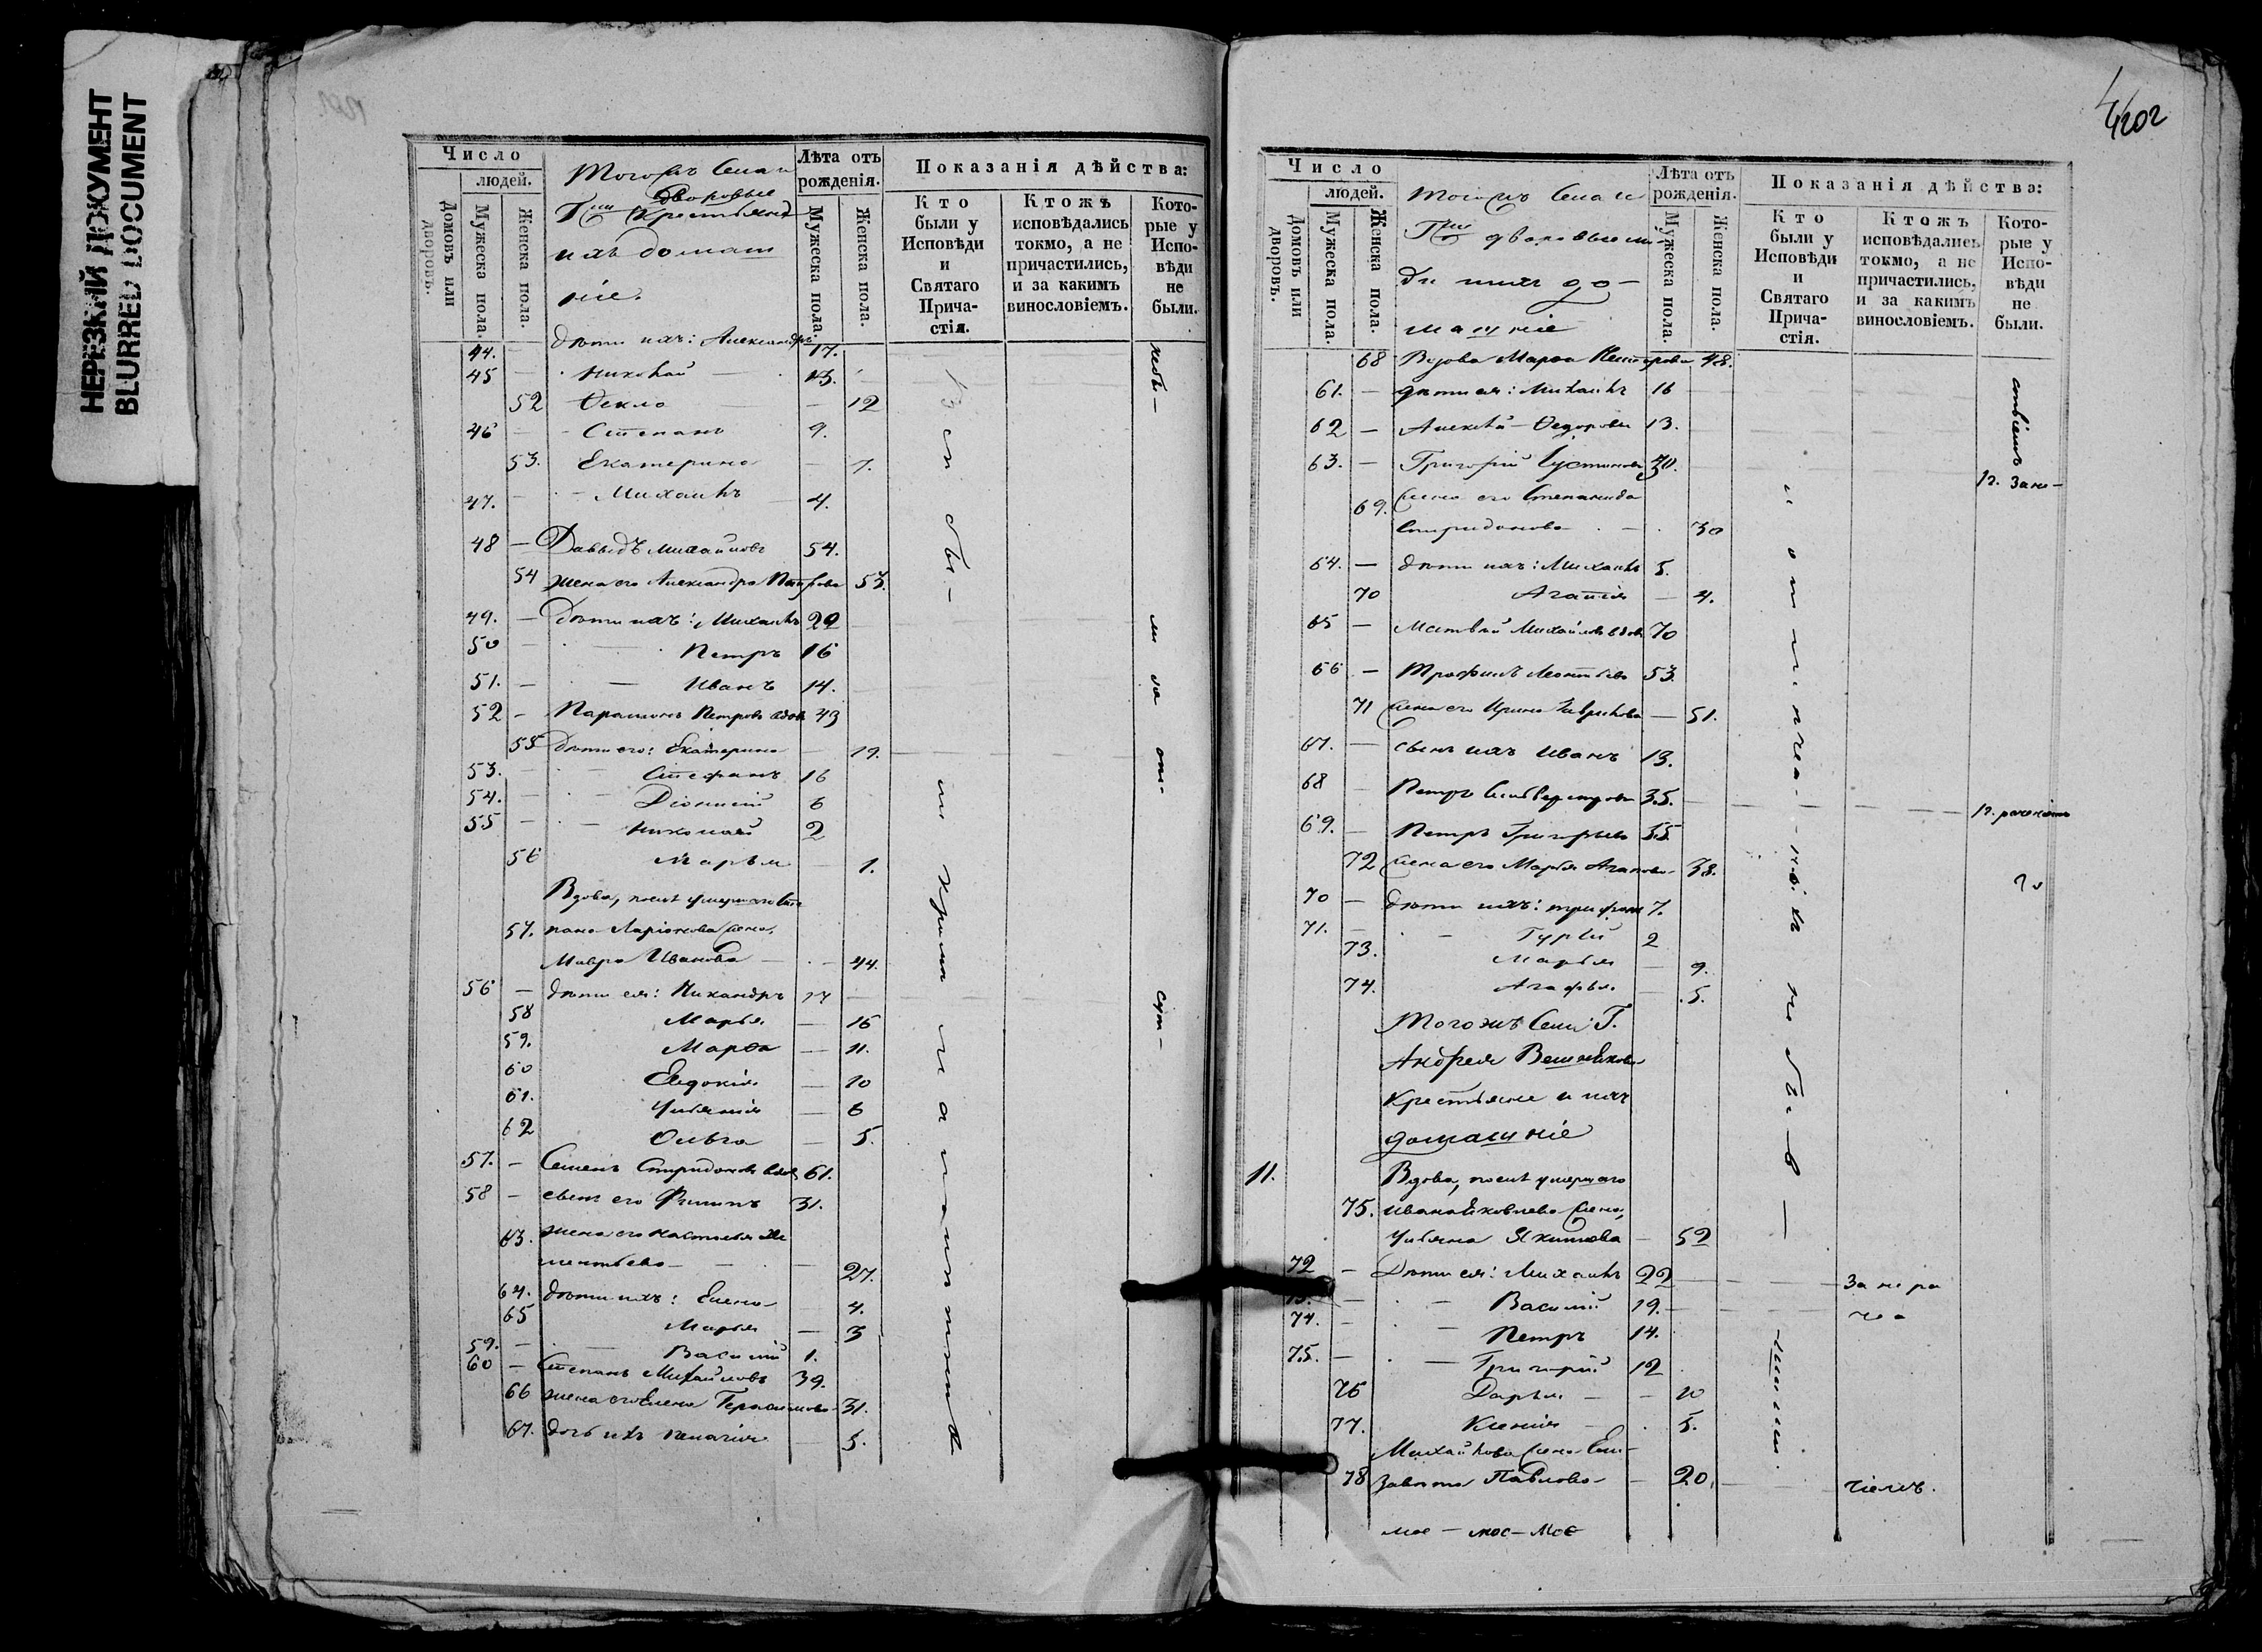 НЕРЕЗКИЙ ДОКУМЕНТ
BLURRED DOCUMENT
Число
людей.
Домовъ или дворовъ.
Мужеска пола.
Женска пола.
Тогожъ Села и
дворовые
Крестьяне
ихъ домаш
ніе.
Лѣта отъ рожденія.
Мужеска пола.
Женска пола.
Показанія дѣйства:
Кто были у Исповѣди и Святаго Прича-стія.
Ктожъ исповѣдались токмо, а не причастились, и за какимъ винословіемъ.
Кото-рые у Испо-вѣди не были.
44. — дѣти ихъ: Александръ 17.
45 — Николай — 13.
52 Ѳекла — 12
46 — Степанъ 9.
53. Екатерина — 7.
47. — Михаилъ 4.
48 — Давыдъ Михайловъ 54.
54 жена его Александра Петрова 53.
49. — Дѣти ихъ: Михаилъ 22
50 — Петръ 16
51. — Иванъ 14.
52 — Парамонъ Петровъ вдов 43
55 Дѣти его: Екатерина — 19.
53. — Стефанъ 16
54. — Діонисій 6
55 — Николай 2
56 Марья — 1.
Вдова, послѣ умершаго Сте
57. пана Ларіонова жена,
Мавра Иванова — 44.
56 — дѣти ея: Никандръ 17
58 Марья — 16
59. Марѳа — 11.
60 Евдокія — 10
61. Ульянія — 6
62 Ольга — 5.
57. — Семенъ Спиридоновъ вдов 61.
58 — сынъ его Филипъ 31.
63. жена его Настасья Кле
ментьева — 27.
64. дѣти ихъ: Елена 4.
65 Марья — 3
59. — Василій 1.
60 — Степанъ Михайловъ 39.
66 жена его Елена Герасимова 31.
67. дочь ихъ Пелагія — 5.
202
Число
людей.
Домовъ или дворовъ.
Мужеска пола.
Женска пола.
Тогожъ Села и
дворовые лю
ди ихъ до-
машніе
Лѣта отъ рожденія.
Мужеска пола.
Женска пола.
Показанія дѣйства:
Кто были у Исповѣди и Святаго Прича-стія.
Ктожъ исповѣдались токмо, а не причастились, и за какимъ винословіемъ.
Кото-рые у Испо-вѣди не были.
68 Вдова Марѳа Нестерова 48.
61. — дѣти ея: Михаилъ 16
62 — Алексѣй Ѳедоровы 13.
63. — Григорій Іустиновъ 30.
69. жена его Степанида
Спиридонова — 30
64. — дѣти ихъ: Михаилъ 5.
70 Агапія — 4.
65 — Матвѣй Михайловъ вдов 70
66 — Трофимъ Леонтьевъ 53.
71 жена его Ирина Гаврилова — 51.
67. — сынъ ихъ Иванъ 13.
68 — Петръ Сильверстровъ 35.
69. — Петръ Григорьевъ 55
72 жена его Марья Агапова 38.
70 — дѣти ихъ: Трифонъ 7.
71. — Гурій 2
73. Марья — 9.
74. Агафья — 5.
Тогожъ Села Г.
Андрея Вешнякова
Крестьяне и ихъ
домашніе
11. Вдова, послѣ умершаго
75. Ивана Яковлева жена,
Ульяна Якимова — 52
72 — Дѣти ея: Михаилъ 22 — за нера
73. — Василій 19.
74. — Петръ 14.
75. — Григорій 12
76 Дарья — 10
77. Ксенія — 5.
Михайлова жена Ели-
78 завета Павлова — 20. — ніемъ.